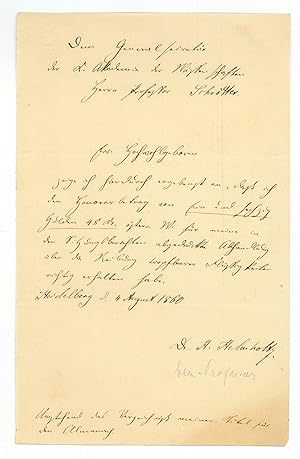 Dem Generalsecretär
der K. Akademie der Wissenschaften
Herrn Professor Schrötter.
Ew. Hochwohlgeboren
zeige ich hierdurch ergebenst an, dass ich
den Honorarbetrag von Ein und sechzig
Gulden 48 östern W. für meine in
den Sitzungsberichten abgedruckte Abhandlung
über die Reibung tropfbarer Flüssigkeiten
richtig erhalten habe.
Heidelberg d. 4 August 1860
Dr. H. Helmholtz
Umstehend das Verzeichniss meiner Titel für
den Almanach